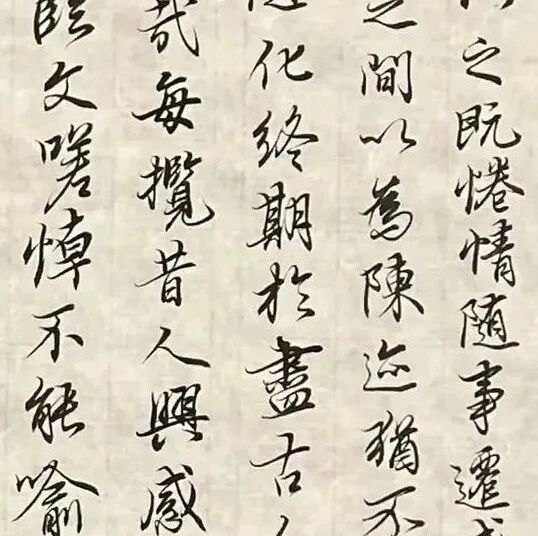 之既惓情隨事遷
之間以為陳迹猶不
化終期於盡古
哉每攬昔人興感
臨文嗟悼不能喻